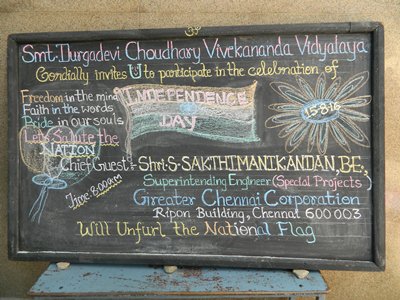 Smt. Durgadevi Choudhary Vivekananda Vidyalaya
Cordially invites U to participate in the celebration of
Freedom in the mind
Faith in the words
Pride in our souls
Let's Salute the
NATION
INDEPENDENCE
DAY
15-8-16
Chief Guest:- Shri-S-SAKTHIMANIKANDAN, B.E.,
Superintending Engineer (Special Projects)
Greater Chennai Corporation
Ripon Building, Chennai 600 003
Time: 8:00am
Will Unfurl the National Flag